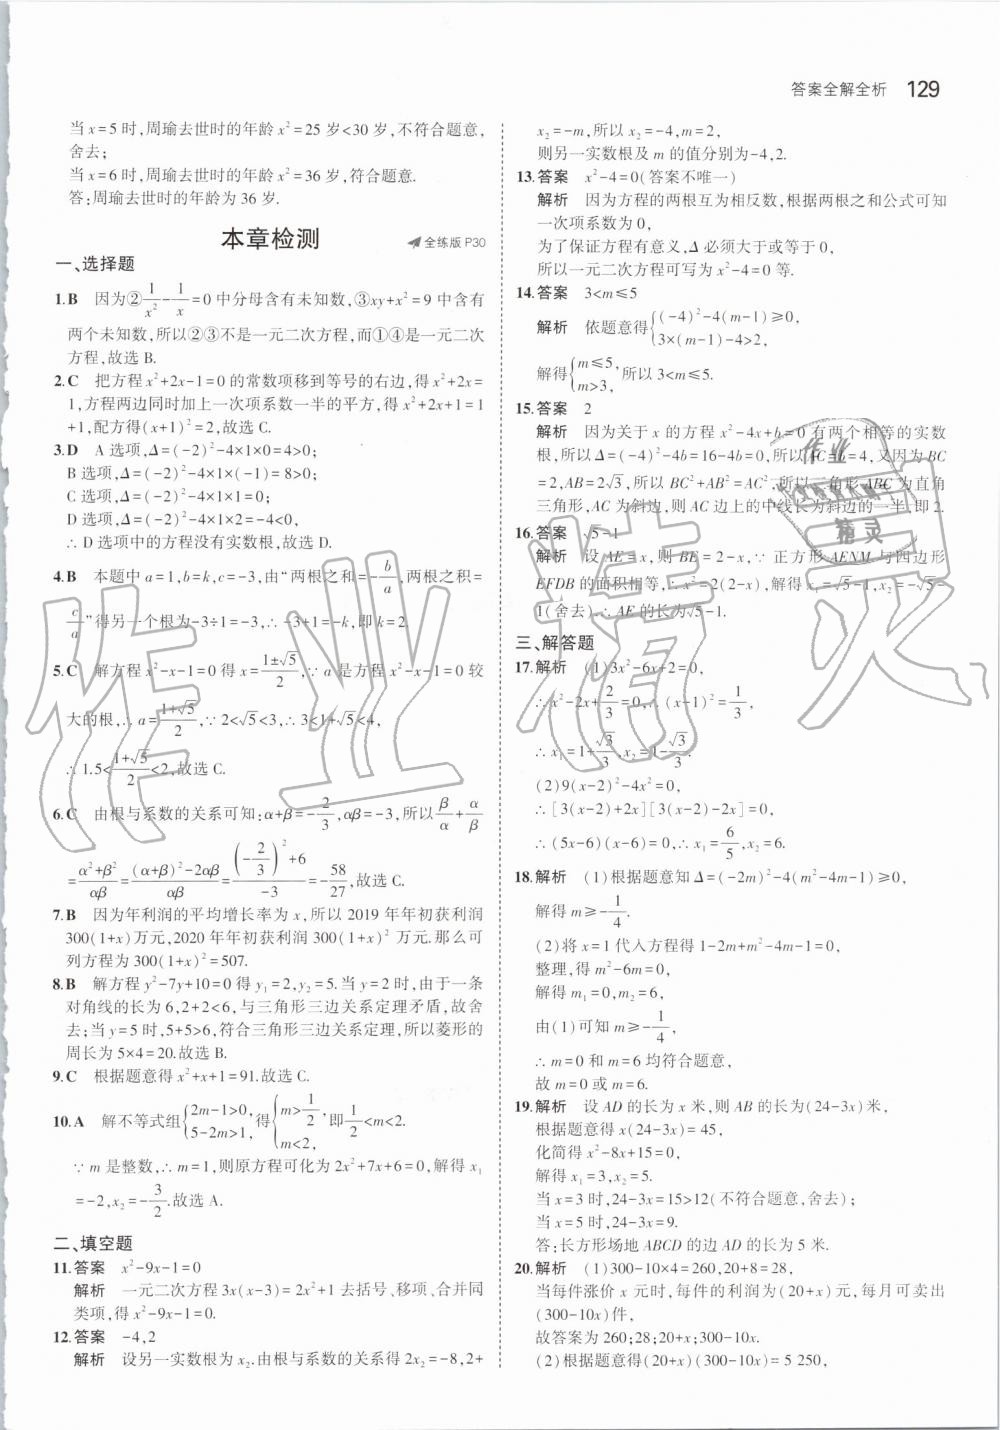 答案全解全析 129
当 x=5 时,周瑜去世时的年龄 x²=25 岁<30 岁,不符合题意,
舍去;
当 x=6 时,周瑜去世时的年龄 x²=36 岁,符合题意.
答:周瑜去世时的年龄为 36 岁.
本章检测 全练版 P30
一、选择题
1.B 因为②1/x²-1/x=0 中分母含有未知数,③xy+x²=9 中含有
两个未知数,所以②③不是一元二次方程,而①④是一元二次
方程,故选 B.
2.C 把方程 x²+2x-1=0 的常数项移到等号的右边,得 x²+2x=
1,方程两边同时加上一次项系数一半的平方,得 x²+2x+1=1
+1,配方得(x+1)²=2,故选 C.
3.D A 选项,Δ=(-2)²-4×1×0=4>0;
B 选项,Δ=(-2)²-4×1×(-1)=8>0;
C 选项,Δ=(-2)²-4×1×1=0;
D 选项,Δ=(-2)²-4×1×2=-4<0,
∴ D 选项中的方程没有实数根,故选 D.
4.B 本题中 a=1,b=k,c=-3,由“两根之和=-b/a,两根之积=
c/a”得另一个根为-3÷1=-3,∴ -3+1=-k,即 k=2.
5.C 解方程 x²-x-1=0 得 x=(1±√5)/2,∵ a 是方程 x²-x-1=0 较
大的根,∴ a=(1+√5)/2,∵ 2<√5<3,∴ 3<1+√5<4,
∴ 1.5<(1+√5)/2<2,故选 C.
6.C 由根与系数的关系可知:α+β=-2/3,αβ=-3,所以 β/α+α/β
=(α²+β²)/αβ=((α+β)²-2αβ)/αβ=((-2/3)²+6)/-3=-58/27,故选 C.
7.B 因为年利润的平均增长率为 x,所以 2019 年年初获利润
300(1+x)万元,2020 年年初获利润 300(1+x)² 万元.那么可
列方程为 300(1+x)²=507.
8.B 解方程 y²-7y+10=0 得 y₁=2,y₂=5.当 y=2 时,由于一条
对角线的长为 6,2+2<6,与三角形三边关系定理矛盾,故舍
去;当 y=5 时,5+5>6,符合三角形三边关系定理,所以菱形的
周长为 5×4=20.故选 B.
9.C 根据题意得 x²+x+1=91.故选 C.
10.A 解不等式组{2m-1>0, 5-2m>1,得{m>1/2, m<2,即1/2<m<2.
∵ m 是整数,∴ m=1,则原方程可化为 2x²+7x+6=0,解得 x₁
=-2,x₂=-3/2.故选 A.
二、填空题
11.答案 x²-9x-1=0
解析 一元二次方程 3x(x-3)=2x²+1 去括号、移项、合并同
类项,得 x²-9x-1=0.
12.答案 -4,2
解析 设另一实数根为 x₂.由根与系数的关系得 2x₂=-8,2+
x₂=-m,所以 x₂=-4,m=2,
则另一实数根及 m 的值分别为-4,2.
13.答案 x²-4=0(答案不唯一)
解析 因为方程的两根互为相反数,根据两根之和公式可知
一次项系数为 0,
为了保证方程有意义,Δ 必须大于或等于 0,
所以一元二次方程可写为 x²-4=0 等.
14.答案 3<m≤5
解析 依题意得{(-4)²-4(m-1)≥0, 3×(m-1)-4>2,
解得{m≤5, m>3,所以 3<m≤5.
15.答案 2
解析 因为关于 x 的方程 x²-4x+b=0 有两个相等的实数
根,所以 Δ=(-4)²-4b=16-4b=0,所以 AC=b=4,又因为 BC
=2,AB=2√3,所以 BC²+AB²=AC²,所以三角形 ABC 为直角
三角形,AC 为斜边,则 AC 边上的中线长为斜边的一半,即 2.
16.答案 √5-1
解析 设 AE=x,则 BE=2-x,∵ 正方形 AENM 与四边形
EFDB 的面积相等,∴ x²=2(2-x),解得 x₁=√5-1,x₂=-√5-
1(舍去),∴ AE 的长为√5-1.
三、解答题
17.解析 (1)3x²-6x+2=0,
∴ x²-2x+2/3=0,∴ (x-1)²=1/3,
∴ x₁=1+√3/3,x₂=1-√3/3.
(2)9(x-2)²-4x²=0,
∴ [3(x-2)+2x][3(x-2)-2x]=0,
∴ (5x-6)(x-6)=0,∴ x₁=6/5,x₂=6.
18.解析 (1)根据题意知 Δ=(-2m)²-4(m²-4m-1)≥0,
解得 m≥-1/4.
(2)将 x=1 代入方程得 1-2m+m²-4m-1=0,
整理,得 m²-6m=0,
解得 m₁=0,m₂=6,
由(1)可知 m≥-1/4,
∴ m=0 和 m=6 均符合题意,
故 m=0 或 m=6.
19.解析 设 AD 的长为 x 米,则 AB 的长为(24-3x)米,
根据题意得 x(24-3x)=45,
化简得 x²-8x+15=0,
解得 x₁=3,x₂=5.
当 x=3 时,24-3x=15>12(不符合题意,舍去);
当 x=5 时,24-3x=9.
答:长方形场地 ABCD 的边 AD 的长为 5 米.
20.解析 (1)300-10×4=260,20+8=28,
当每件涨价 x 元时,每件的利润为(20+x)元,每月可卖出
(300-10x)件,
故答案为 260;28;20+x;300-10x.
(2)根据题意得(20+x)(300-10x)=5 250,
作业精灵
作业
精灵